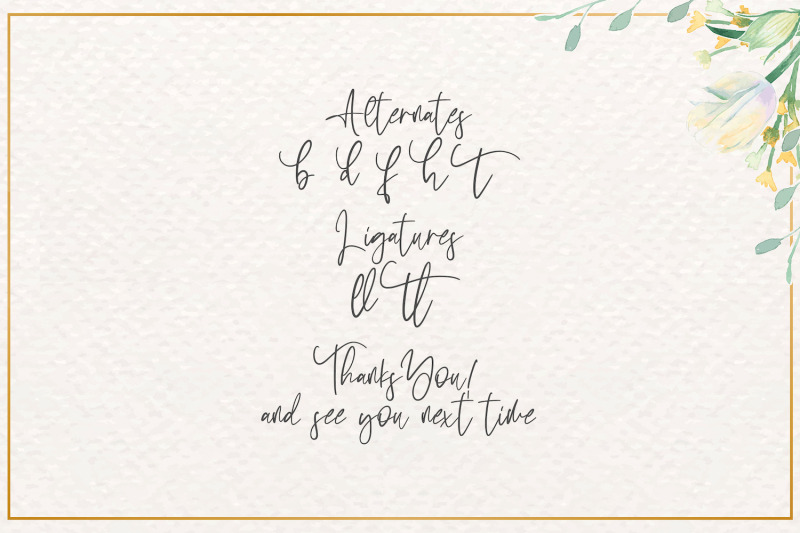 Alternates
b d f h t
Ligatures
ll tt
Thanks You!
and see you next time